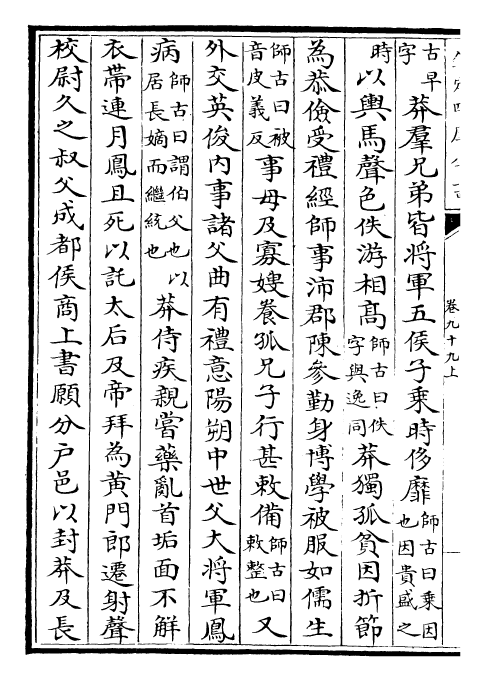 卷九十九上
古早字莽羣兄弟皆將軍五侯子乘時侈靡師古曰乘因也因貴盛之
時以輿馬聲色佚游相髙師古曰佚字與逸同莽獨孤貧因折節
為恭儉受禮經師事沛郡陳參勤身博學被服如儒生
師古曰被音皮義反事母及寡嫂養孤兄子行甚敕備師古曰敕整也又
外交英俊内事諸父曲有禮意陽朔中世父大將軍鳳
病師古曰謂伯父也以居長嫡而繼統也莽侍疾親嘗藥亂首垢面不解
衣帶連月鳳且死以託太后及帝拜為黄門郎遷射聲
校尉久之叔父成都侯商上書願分户邑以封莽及長